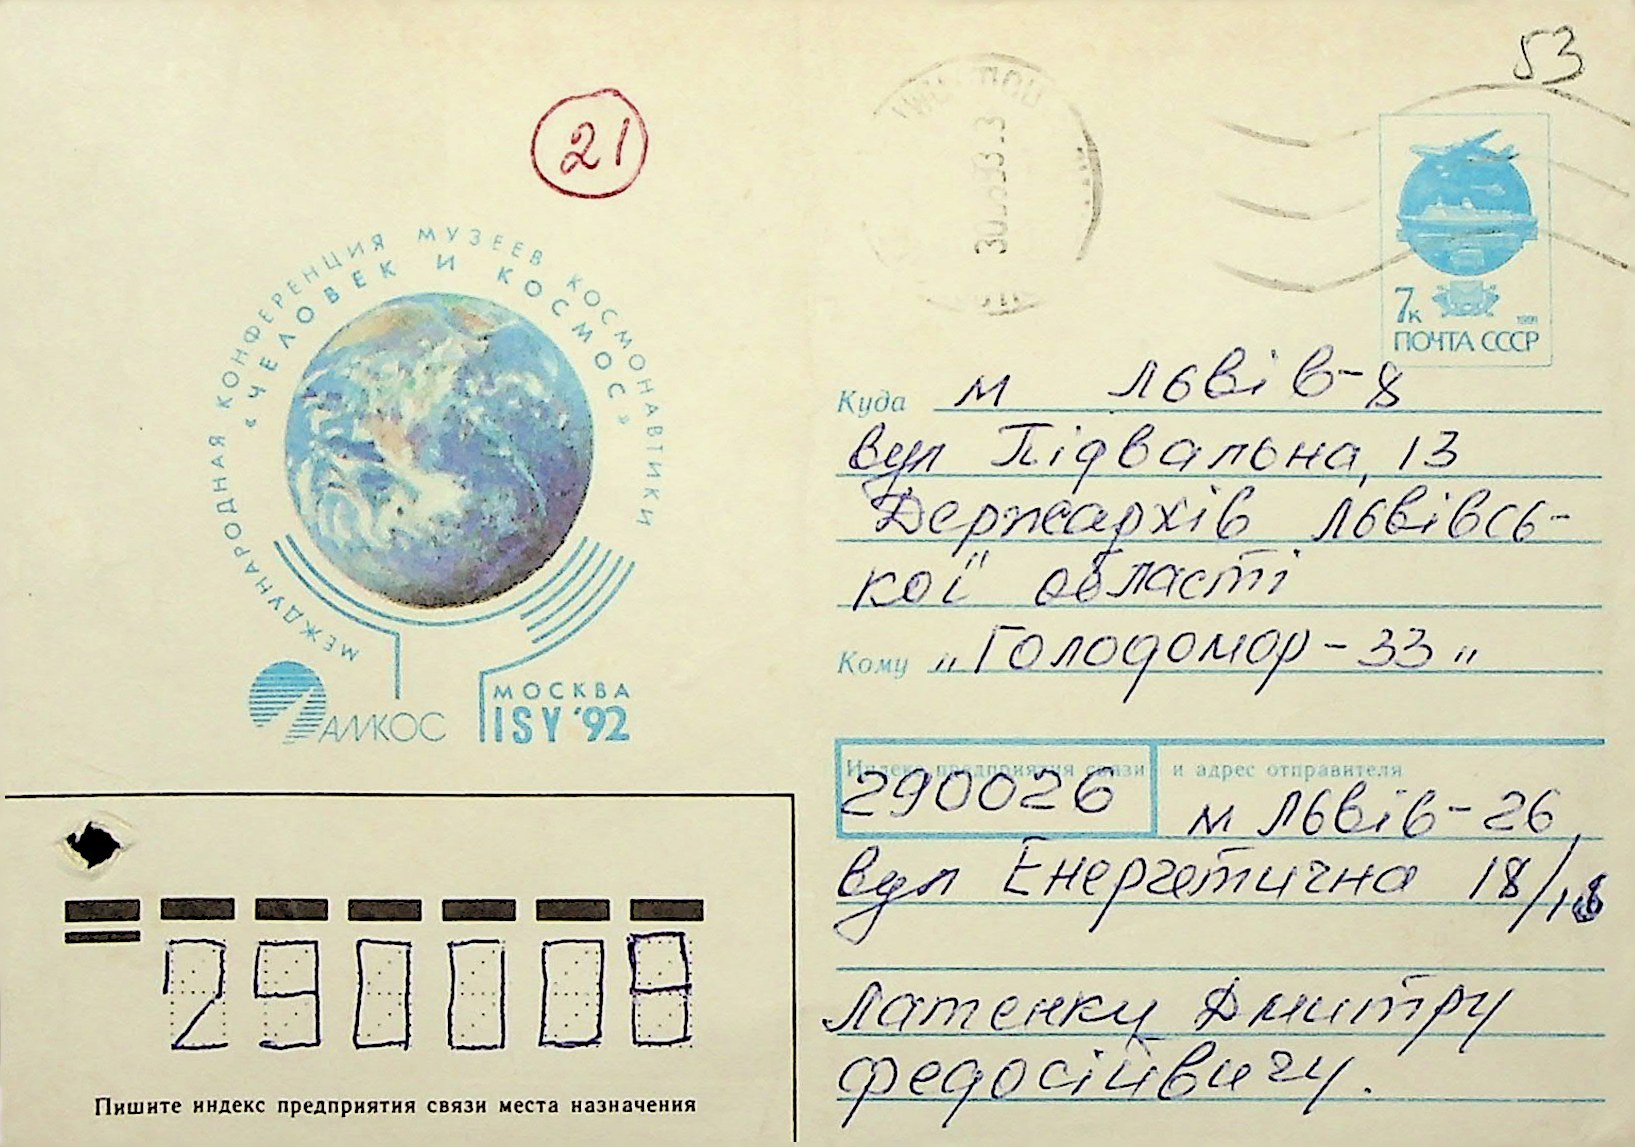 53
21
МЕЖДУНАРОДНАЯ КОНФЕРЕНЦИЯ МУЗЕЕВ КОСМОНАВТИКИ
«ЧЕЛОВЕК И КОСМОС»
АМКОС
МОСКВА
ISY '92
7к
1991
ПОЧТА СССР
Куда м Львів-8
вул Підвальна, 13
Держархів Львівсь-
кої області
Кому „Голодомор-33„
Индекс предприятия связи и адрес отправителя
290026 м Львів-26,
вул Енергетична 18/18
Латенку Дмитру
Федосійвичу.
290008
Пишите индекс предприятия связи места назначения